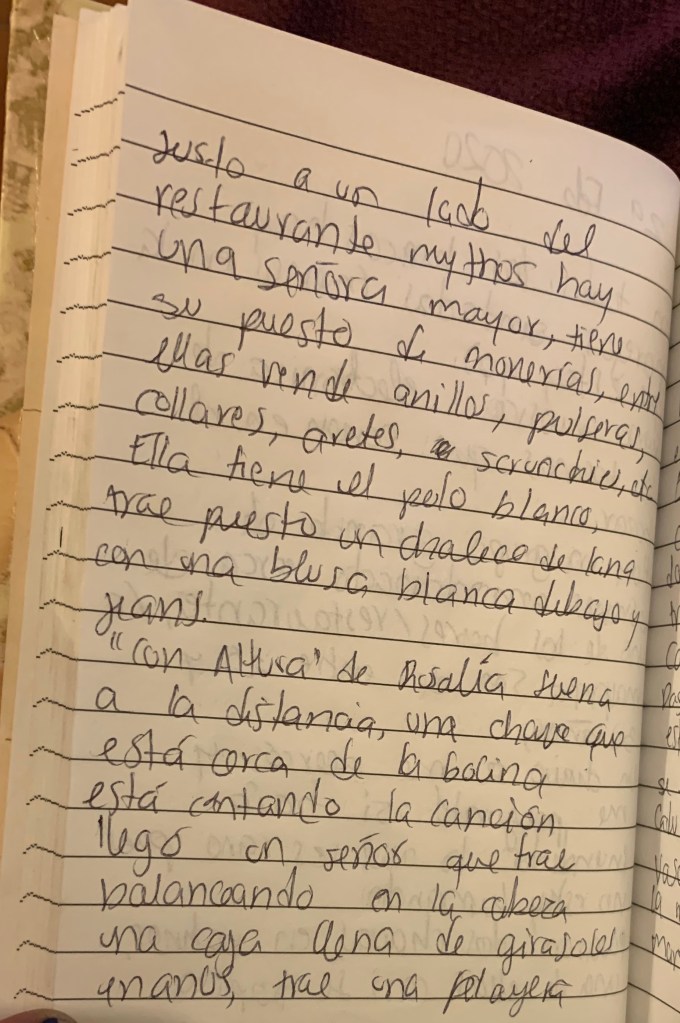 Justo a un lado del
restaurante mythos hay
una señora mayor, tiene
su puesto de monerías, entre
ellas vende anillos, pulseras,
collares, aretes, scrunchies, etc.
Ella tiene el pelo blanco,
trae puesto un chaleco de lana
con una blusa blanca debajo y
jeans.
"Con Altura" de Rosalía suena
a la distancia, una chava que
está cerca de la bocina
está cantando la canción
llegó un señor que trae
balanceando en la cabeza
una caja llena de girasoles
enanos, trae una playera